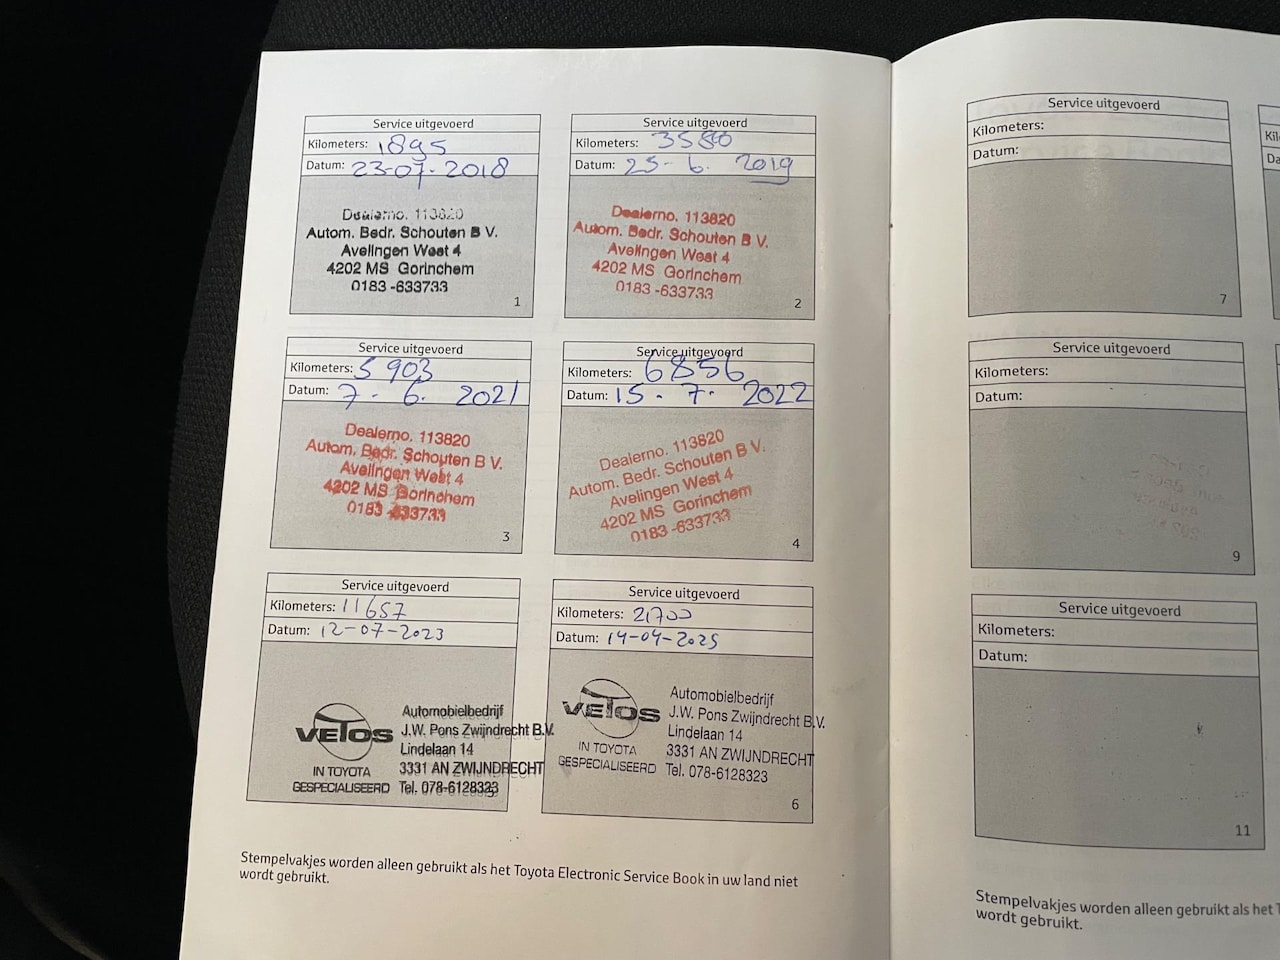 Service uitgevoerd
Kilometers: 1895
Datum: 23-07-2018
Dealerno. 113820
Autom. Bedr. Schouten B V.
Avelingen West 4
4202 MS Gorinchem
0183 -633733
1
Service uitgevoerd
Kilometers: 3580
Datum: 25-6. 2019
Dealerno. 113820
Autom. Bedr. Schouten B V.
Avelingen West 4
4202 MS Gorinchem
0183 -633733
2
Service uitgevoerd
Kilometers: 5903
Datum: 7-6. 2021
Dealerno. 113820
Autom. Bedr. Schouten B V.
Avelingen West 4
4202 MS Gorinchem
0183 -633733
3
Service uitgevoerd
Kilometers: 6856
Datum: 15-7. 2022
Dealerno. 113820
Autom. Bedr. Schouten B V.
Avelingen West 4
4202 MS Gorinchem
0183 -633733
4
Service uitgevoerd
Kilometers: 11657
Datum: 12-07-2023
VETOS
IN TOYOTA
GESPECIALISEERD
Automobielbedrijf
J.W. Pons Zwijndrecht B.V.
Lindelaan 14
3331 AN ZWIJNDRECHT
Tel. 078-6128323
Service uitgevoerd
Kilometers: 21700
Datum: 14-04-2025
VETOS
IN TOYOTA
GESPECIALISEERD
Automobielbedrijf
J.W. Pons Zwijndrecht B.V.
Lindelaan 14
3331 AN ZWIJNDRECHT
Tel. 078-6128323
6
Stempelvakjes worden alleen gebruikt als het Toyota Electronic Service Book in uw land niet
wordt gebruikt.
Service uitgevoerd
Kilometers:
Datum:
7
Service uitgevoerd
Kilometers:
Datum:
9
Service uitgevoerd
Kilometers:
Datum:
11
Stempelvakjes worden alleen gebruikt als het
wordt gebruikt.